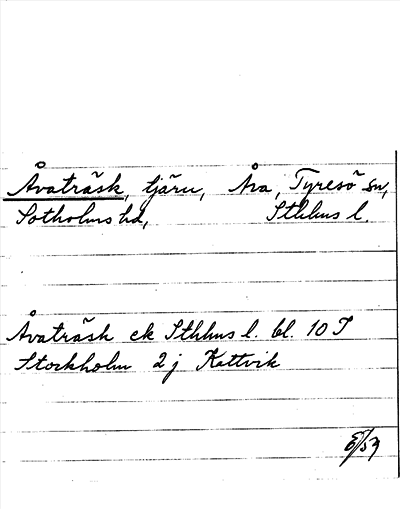 Åvaträsk, tjärn, Åva, Tyresö sn,
Sotholms hd, Sthlms l.
Åvaträsk ek Sthlms l. bl. 10 I
Stockholm 2 j Kattvik